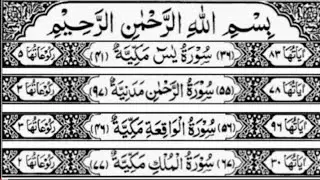 بِسْمِ اللهِ الرَّحْمٰنِ الرَّحِيْمِ
اٰيَاتُهَا ۸۳ (۳۶) سُوْرَةُ يٰسٓ مَكِّيَّةٌ (۴۱) رُكُوْعَاتُهَا ۵
اٰيَاتُهَا ۷۸ (۵۵) سُوْرَةُ الرَّحْمٰنِ مَدَنِيَّةٌ (۹۷) رُكُوْعَاتُهَا ۳
اٰيَاتُهَا ۹۶ (۵۶) سُوْرَةُ الْوَاقِعَةِ مَكِّيَّةٌ (۴۶) رُكُوْعَاتُهَا ۳
اٰيَاتُهَا ۳۰ (۶۷) سُوْرَةُ الْمُلْكِ مَكِّيَّةٌ (۷۷) رُكُوْعَاتُهَا ۲